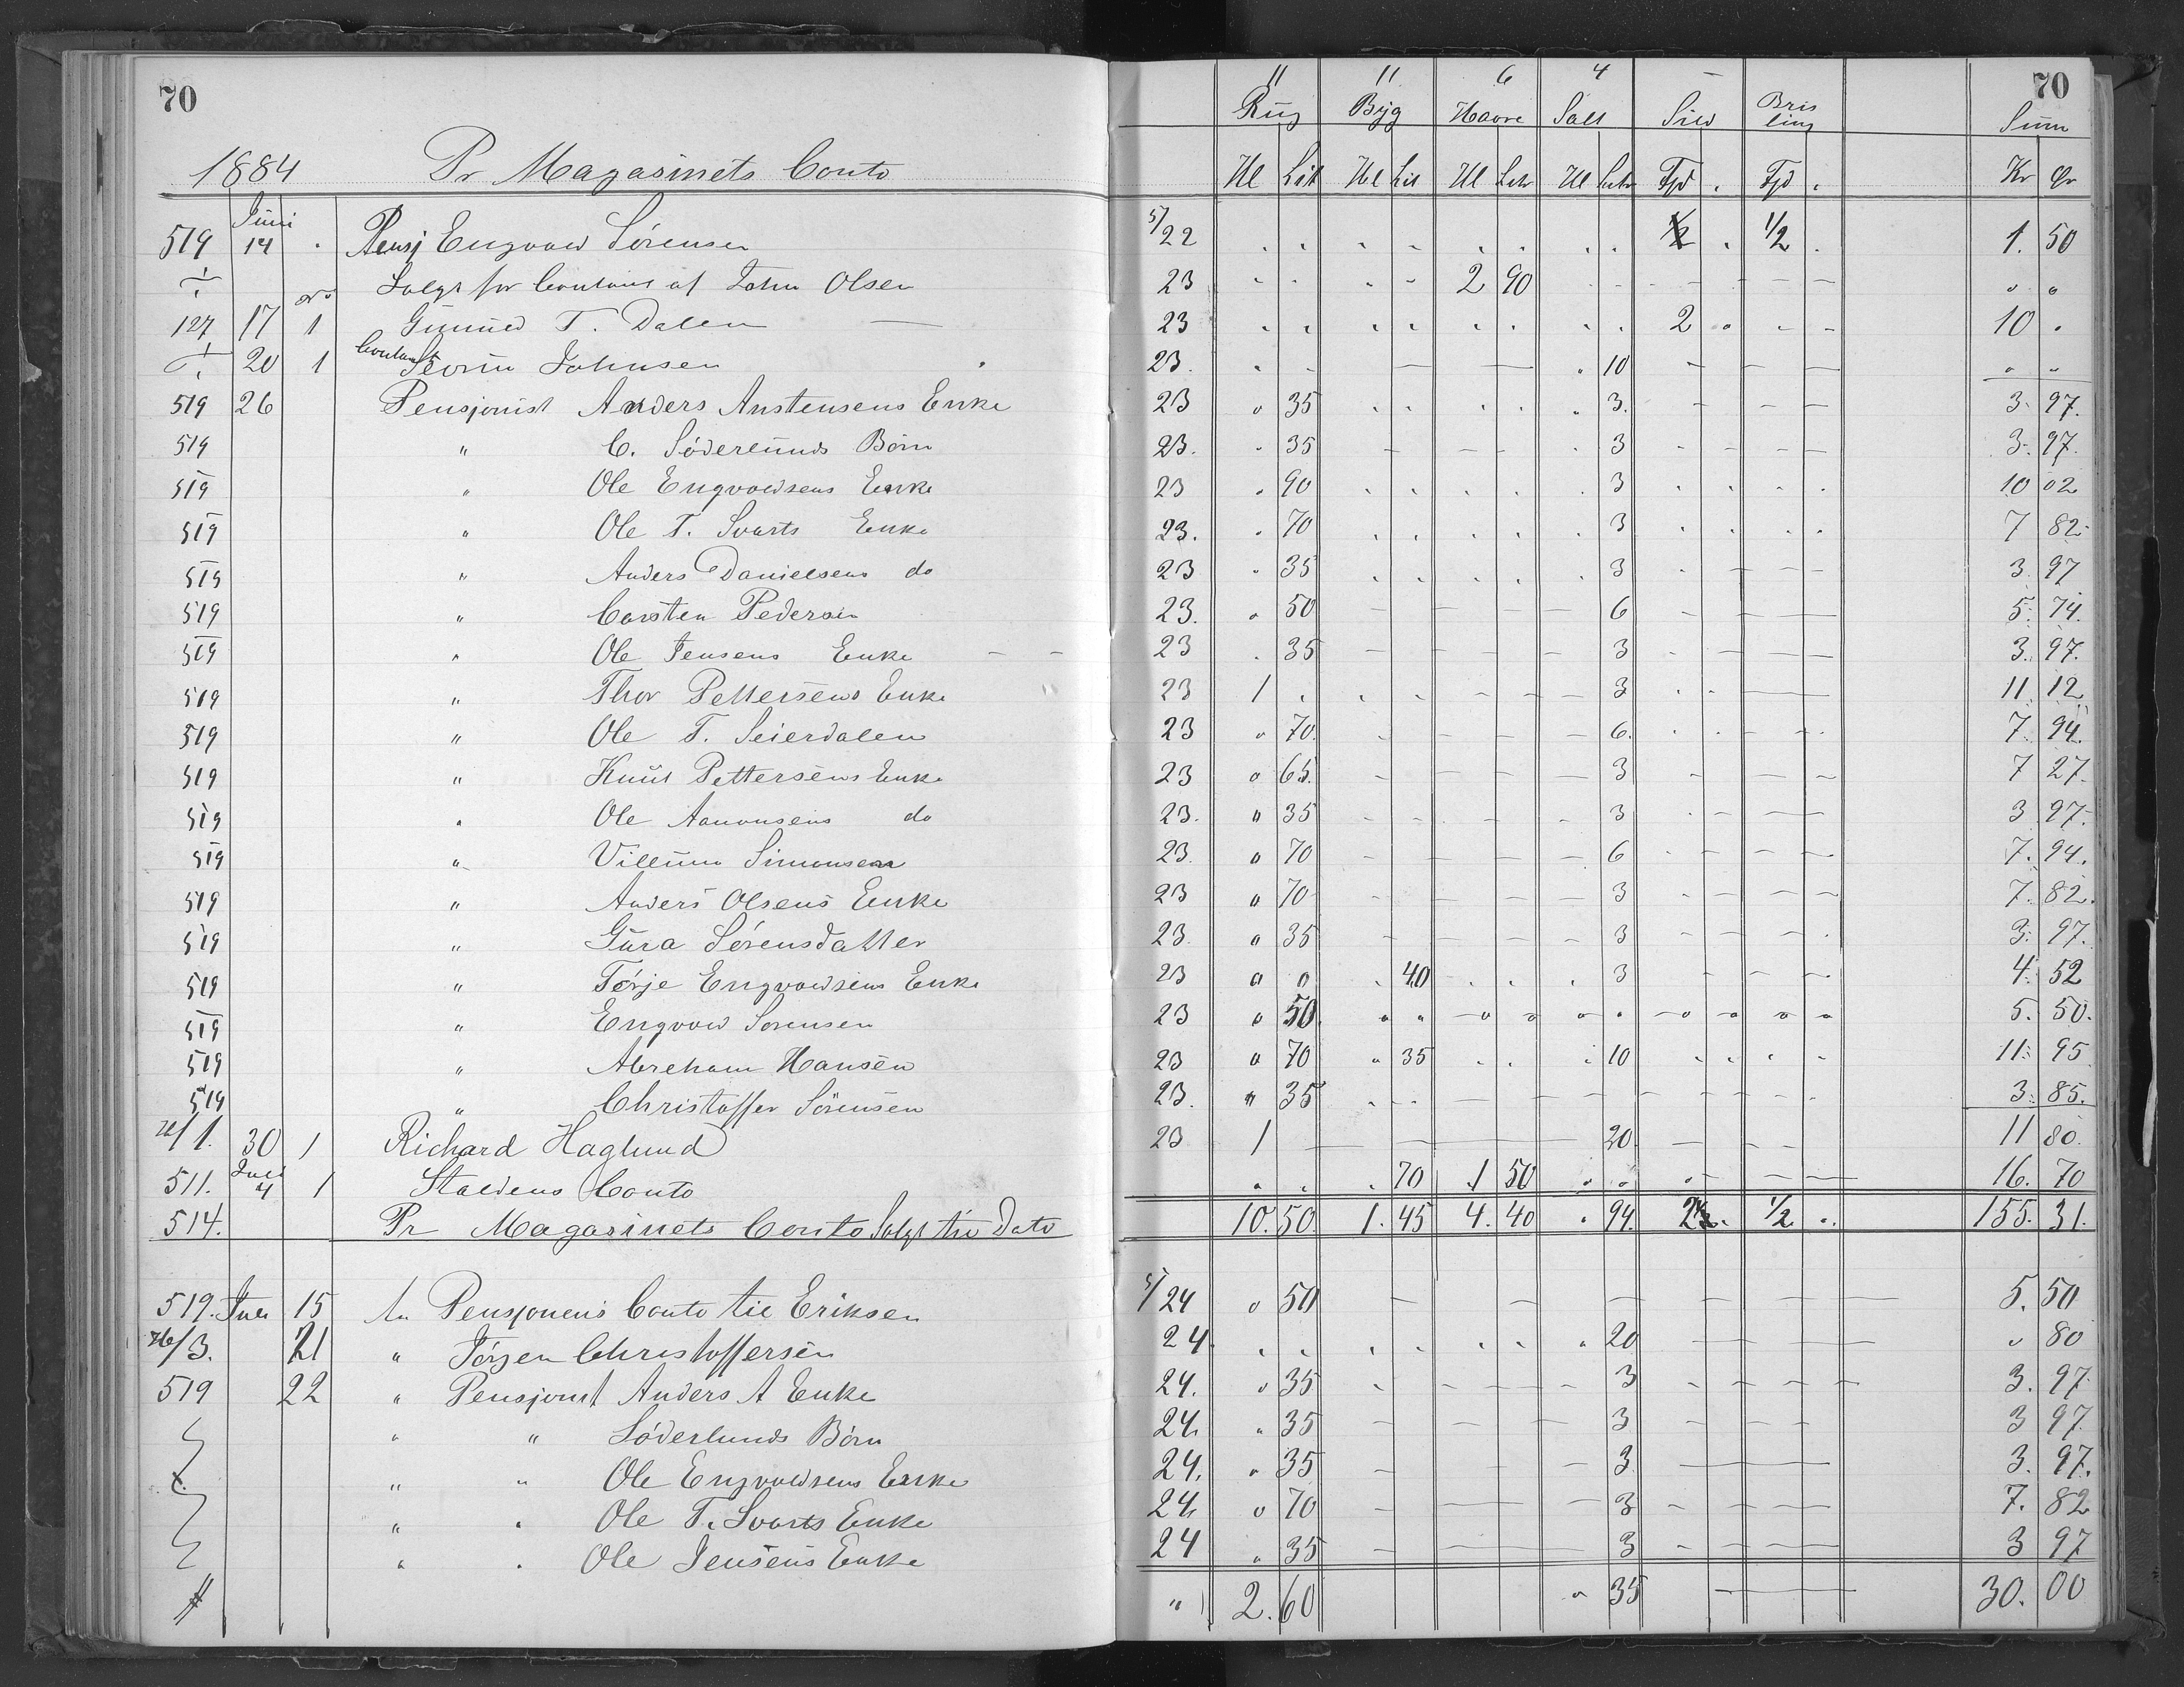 70 11 11 6 4 – 70
Rug Byg Havre Salt Sild Brisling Sum
1884 Pr Magasinets Conto Hl Lit Hl Lit Hl Litr Hl Litr Fjd . Fjd . Kr Ør
519 Juni 14 . Pensj Engvald Sörensen 5/22 . . . . . . . . 1/2 . 1/2 . 1. 50
÷ Solgt for Contant af John Olsen 23 . . . . 2 90 - - - - - - " "
127 17 1 Gunuld T. Dalen — 23 . . . . . . . . 2 " - - 10 .
÷ 20 1 Contant Sevrin Johnsen 23. . . — — . 10 – – – " "
519 26 Pensjonist Anders Anstensens Enke 23 " 35 . . . . . 3. – – – 3. 97.
519 " C. Söderlunds Börn 23. " 35 – – – . 3 – – – – 3. 97.
519 " Ole Engvoldsens Enke 23 . 90 . . . . . 3 . . . . 10 02
519 " Ole T. Svarts Enke 23. . 70 . . . . . 3 . . . . 7 82
519 " Anders Danielsens do 23 " 35 . . . . . 3 . – – – 3. 97
519 " Carsten Pedersen 23. " 50 – – – – 6 – – — 5. 74.
519 " Ole Jensens Enke – – 23 . 35 – – – – 3 – – – — 3. 97.
519 " Thor Pettersens Enke 23 1 . . . – – – 3 . . — — 11. 12
519 " Ole T. Seierdalen 23 " 70. – – – – 6. . . – – . 7. 94.
519 " Knut Pettersens Enke 23 " 65. – – – – 3 – – – 7 27.
519 " Ole Aanonsens do 23. " 35 – – – – – 3 . – – — 3 97.
519 " Villum Simonsen 23. " 70 – – – – 6 – – – –. 7. 94.
519 " Anders Olsens Enke 23 " 70 – – – – 3 – – – – 7. 82.
519 " Gura Sörensdatter 23. " 35 – – – – 3 – – – . 3. 97.
519 " Törje Engvoldsens Enke 23 " " . 40 . . . 3 – – – 4. 52
519 " Engvold Sorensen 23 " 50. " " – " " " " – " " " " 5. 50.
519 " Abreham Hansen 23 " 70 " 35 . . . 10 . . . . 11. 95
519 " Christoffer Sörensen 23. " 35 . . . – – – – – – – – . 3. 85.
26/1. 30 1 Richard Haglund 23 1 — — — 20 — – – 11 80.
511. Juli 4 1 Staldens Conto " . . 70 1 50 " " " – – — 16. 70
514. Pr Magasinets Conto Solgt til Dato 10. 50. 1. 45 4. 40 . 94. 2 1/2. 1/2 . . 155. 31.
519. Juli 15 An Pensjonens Conto til Eriksen 5/24 " 50 – – — – – — 5. 50
26/3. 21 " Jörgen Christoffersen 24. . . . . . . " 20 — — — " 80
519 22 " Pensjonist Anders A Enke 24. " 35 – – – – 3 – – – — 3. 97.
" " Söderlunds Börn 24. " 35 – – — 3 – – – 3 97.
" " Ole Engvoldsens Enke 24. " 35 – – 3 — — 3. 97.
" . Ole T. Svarts Enke 24. " 70 – — – 3 – – — 7. 82
" . Ole Jensens Enke 24 " 35 – — 3 – – – 3 97
" 2. 60 " 35 — 30. 00